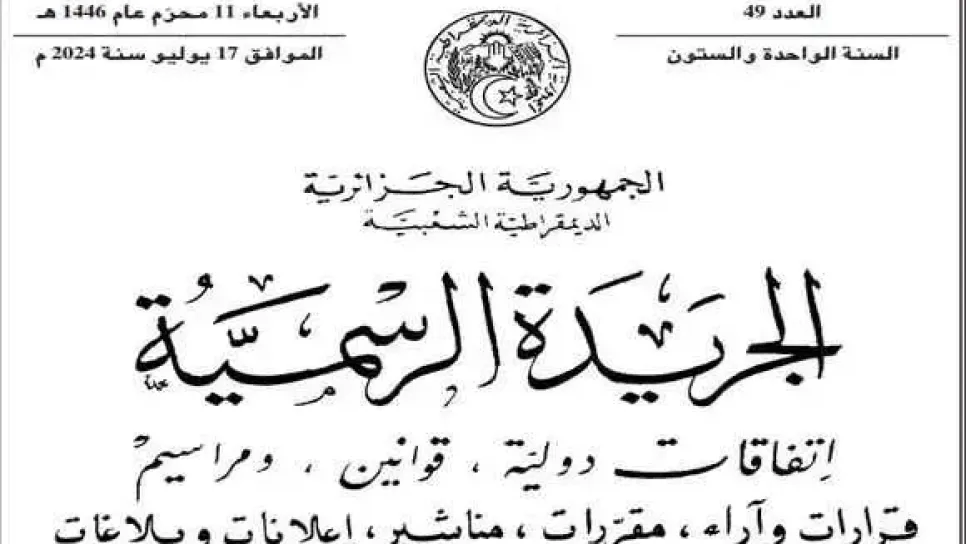 العدد 49
السنة الواحدة والستون
الأربعاء 11 محرّم عام 1446 هـ
الموافق 17 يوليو سنة 2024 م
الجمهوريّة الجزائريّة
الديمقراطيّة الشعبيّة
الجريدة الرسميّة
إتفاقات دوليّة ، قوانين ، ومراسيم
قرارات وآراء ، مقرّرات ، مناشير، إعلانات وبلاغات